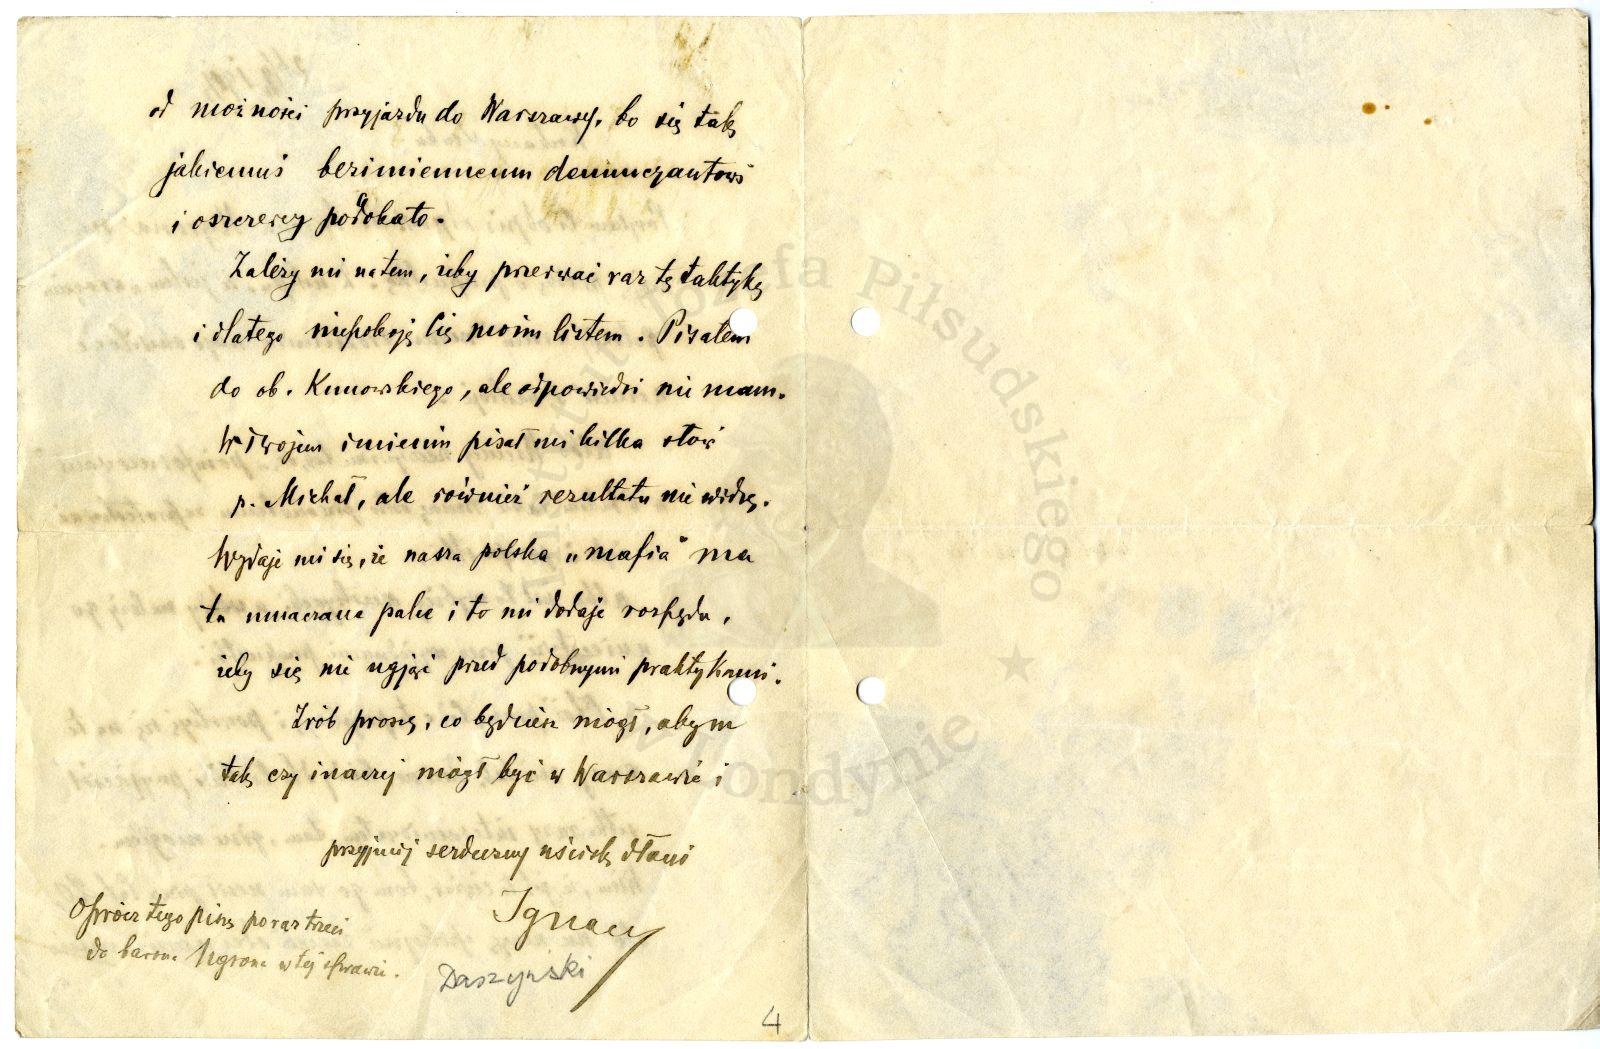 od możności przyjazdu do Warszawy, bo się tak
jakiemuś bezimiennemu denuncyantowi
i oszczercy podobało.
Zależy mi na tem, żeby przerwać raz tę taktykę
i dlatego niepokoję Cię moim listem. Pisałem
do ob. Kunowskiego, ale odpowiedzi nie mam.
W Twojem imieniu pisał mi kilka słów
p. Michał, ale również rezultatu nie widzę.
Wydaje mi się, że nasza polska „mafia" ma
tu umaczane palce i to mi dodaje rozpędu,
żeby się nie ugiąć przed podobnymi praktykami.
Zrób proszę, co będziesz mógł, abym
tak czy inaczej mógł być w Warszawie i
przyjmij serdeczny uścisk dłoni
Ignacy
Daszyński
Oprócz tego piszę po raz trzeci
do barona Ugrona w tej sprawie.
4
Józefa Piłsudskiego
w Londynie